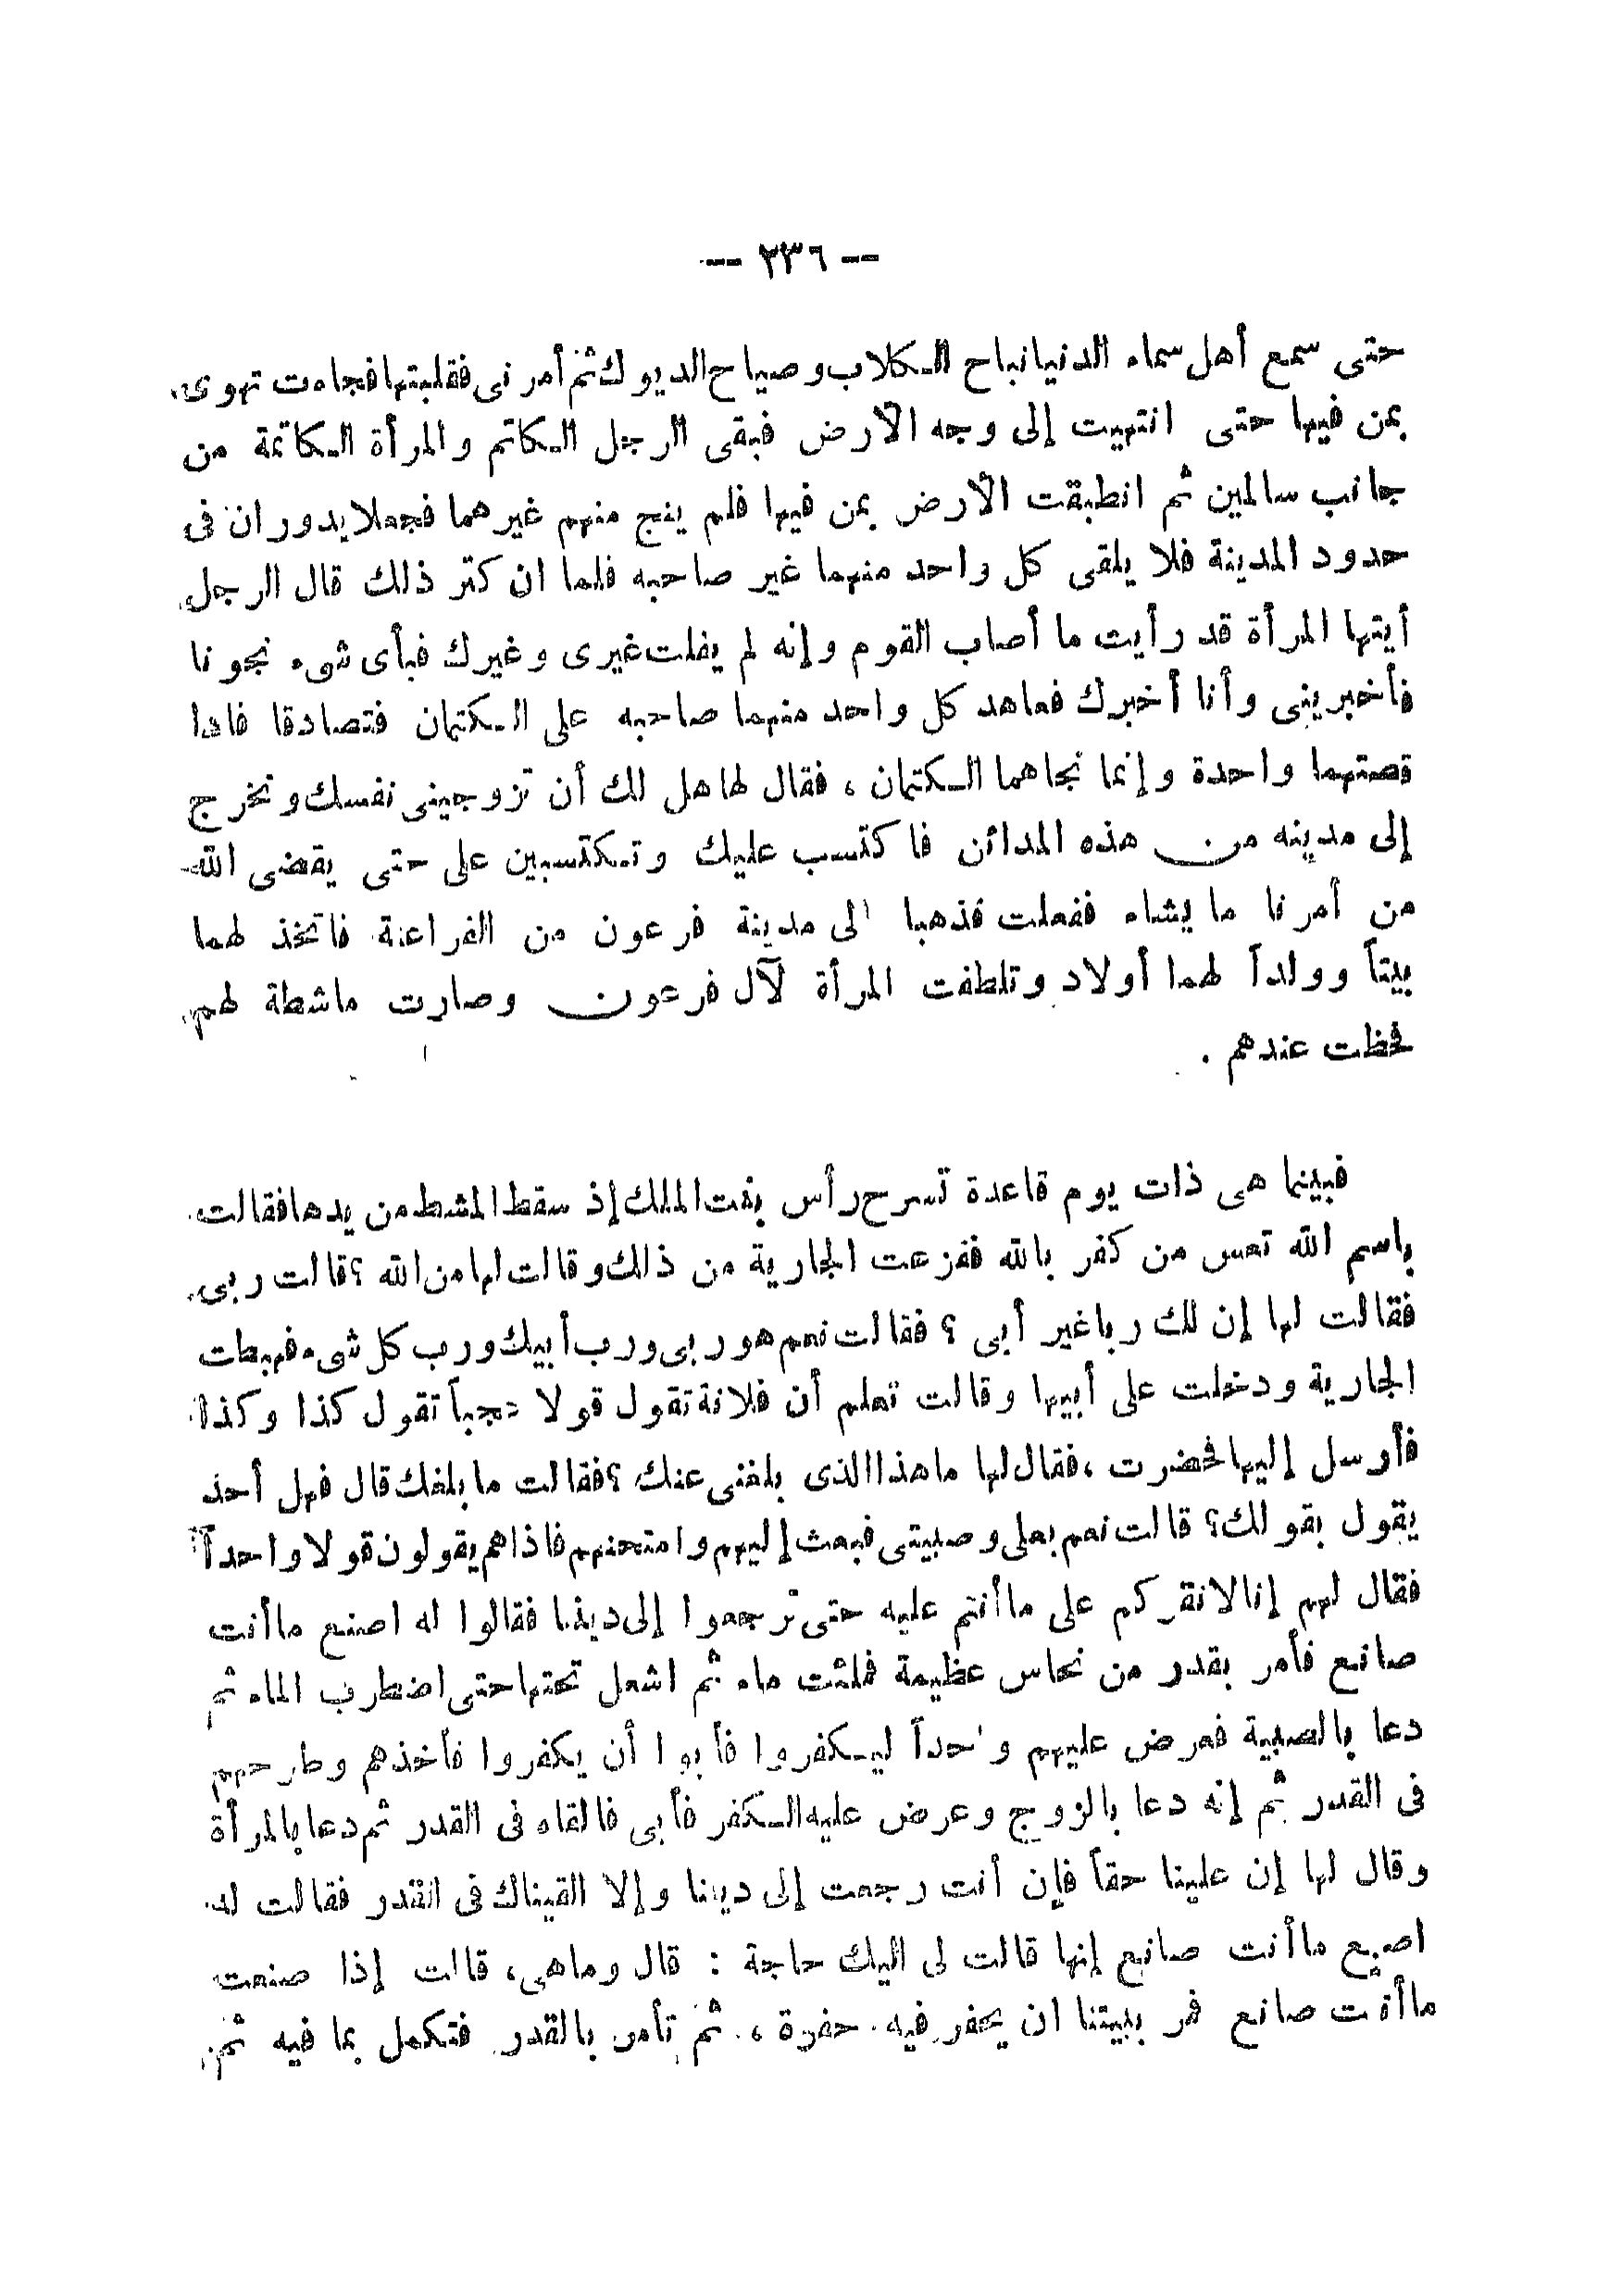 -- ٢٣٦ --
حتى سمع أهل سماء الدنيا نباح الكلاب وصياح الديوك ثم أمرنى فقلبتها فجاءت تهوى
بمن فيها حتى انتهيت إلى وجه الأرض فبقى الرجل الكاتم والمرأة الكاتمة من
جانب سالمين ثم انطبقت الأرض بمن فيها فلم ينج منهم غيرهما فجعلا يدوران فى
حدود المدينة فلا يلقى كل واحد منهما غير صاحبه فلما ان كثر ذلك قال الرجل
أيتها المرأة قد رأيت ما أصاب القوم وإنه لم يفلت غيرى وغيرك فبأى شىء نجونا
فأخبرينى وأنا أخبرك فعاهد كل واحد منهما صاحبه على الكتمان فتصادقا فاذا
قصتهما واحدة وإنما نجاهما الكتمان ، فقال لها هل لك أن تزوجينى نفسك ونخرج
إلى مدينه من هذه المدائن فاكتسب عليك وتكتسبين على حتى يقضى الله
من أمرنا ما يشاء ففعلت فذهبا الى مدينة فرعون من الفراعنة فاتخذ لهما
بيتاً وولداً لهما أولاد وتلطفت المرأة لآل فرعون وصارت ماشطة لهم
فحظت عندهم .
فبينما هى ذات يوم قاعدة تسرح رأس بنت الملك إذ سقط المشط من يدها فقالت
باسم الله تعس من كفر بالله ففزعت الجارية من ذلك وقالت لها من الله ؟ قالت ربى
فقالت لها إن لك ربا غير أبى ؟ فقالت نعم هو ربى ورب أبيك ورب كل شىء فهبطت
الجارية ودخلت على أبيها وقالت تعلم أن فلانة تقول قولا عجباً تقول كذا وكذا
فأرسل إليها فحضرت ، فقال لها ما هذا الذى بلغنى عنك ؟ فقالت ما بلغك قال فهل أحد
يقول بقولك؟ قالت نعم بعلى وصبيتى فبعث إليهم وامتحنهم فاذا هم يقولون قولا واحداً
فقال لهم إنا لا نقركم على ما أنتم عليه حتى ترجعوا إلى ديننا فقالوا له اصنع ما أنت
صانع فأمر بقدر من نحاس عظيمة فملئت ماء ثم اشعل تحتها حتى اضطرب الماء ثم
دعا بالصبية فعرض عليهم واحداً ليكفروا فأبوا أن يكفروا فأخذهم وطرحهم
فى القدر ثم إنه دعا بالزوج وعرض عليه الكفر فأبى فالقاه فى القدر ثم دعا بالمرأة
وقال لها إن علينا حقاً فإن أنت رجعت إلى ديننا وإلا القيناك فى القدر فقالت له
اصنع ما أنت صانع إنها قالت لى اليك حاجة : قال وماهى، قالت إذا صنعت
ما أنت صانع فمر ببيتنا ان يحفر فيه حفرة ، ثم تأمر بالقدر فتكمل بما فيه ثم